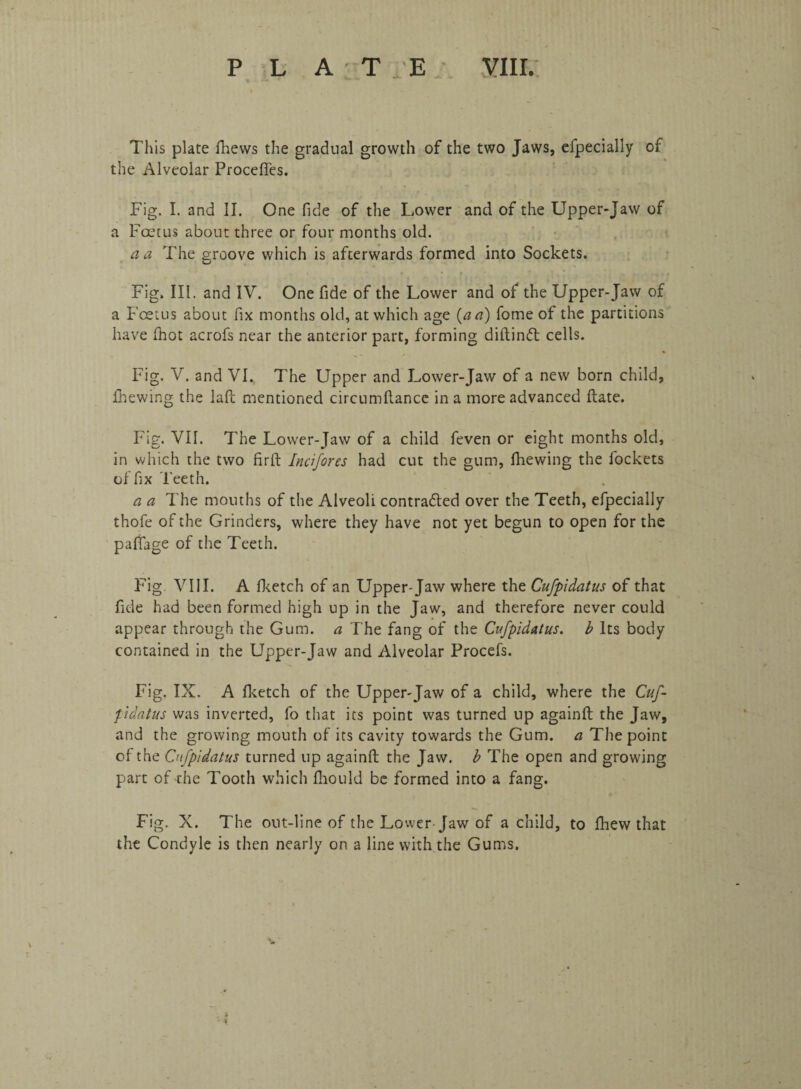 PLATE VIII.
This plate ſhews the gradual growth of the two Jaws, eſpecially of
the Alveolar Proceſſes.
Fig. I. and II. One ſide of the Lower and of the Upper-Jaw of
a Fœtus about three or four months old.
a a The groove which is afterwards formed into Sockets.
Fig. III. and IV. One ſide of the Lower and of the Upper-Jaw of
a Fœtus about ſix months old, at which age (a a) ſome of the partitions
have ſhot acroſs near the anterior part, forming diſtinct cells.
Fig. V. and VI. The Upper and Lower-Jaw of a new born child,
ſhewing the laſt mentioned circumſtance in a more advanced ſtate.
Fig. VII. The Lower-Jaw of a child ſeven or eight months old,
in which the two firſt Inciſores had cut the gum, ſhewing the ſockets
of ſix Teeth.
a a The mouths of the Alveoli contracted over the Teeth, eſpecially
thoſe of the Grinders, where they have not yet begun to open for the
paſſage of the Teeth.
Fig VIII. A ſketch of an Upper-Jaw where the Cuſpidatus of that
ſide had been formed high up in the Jaw, and therefore never could
appear through the Gum. a The fang of the Cuſpidatus. b Its body
contained in the Upper-Jaw and Alveolar Proceſs.
Fig. IX. A ſketch of the Upper-Jaw of a child, where the Cuſ-
pidatus was inverted, ſo that its point was turned up againſt the Jaw,
and the growing mouth of its cavity towards the Gum. a The point
of the Cuſpidatus turned up againſt the Jaw. b The open and growing
part of the Tooth which ſhould be formed into a fang.
Fig. X. The out-line of the Lower-Jaw of a child, to ſhew that
the Condyle is then nearly on a line with the Gums.